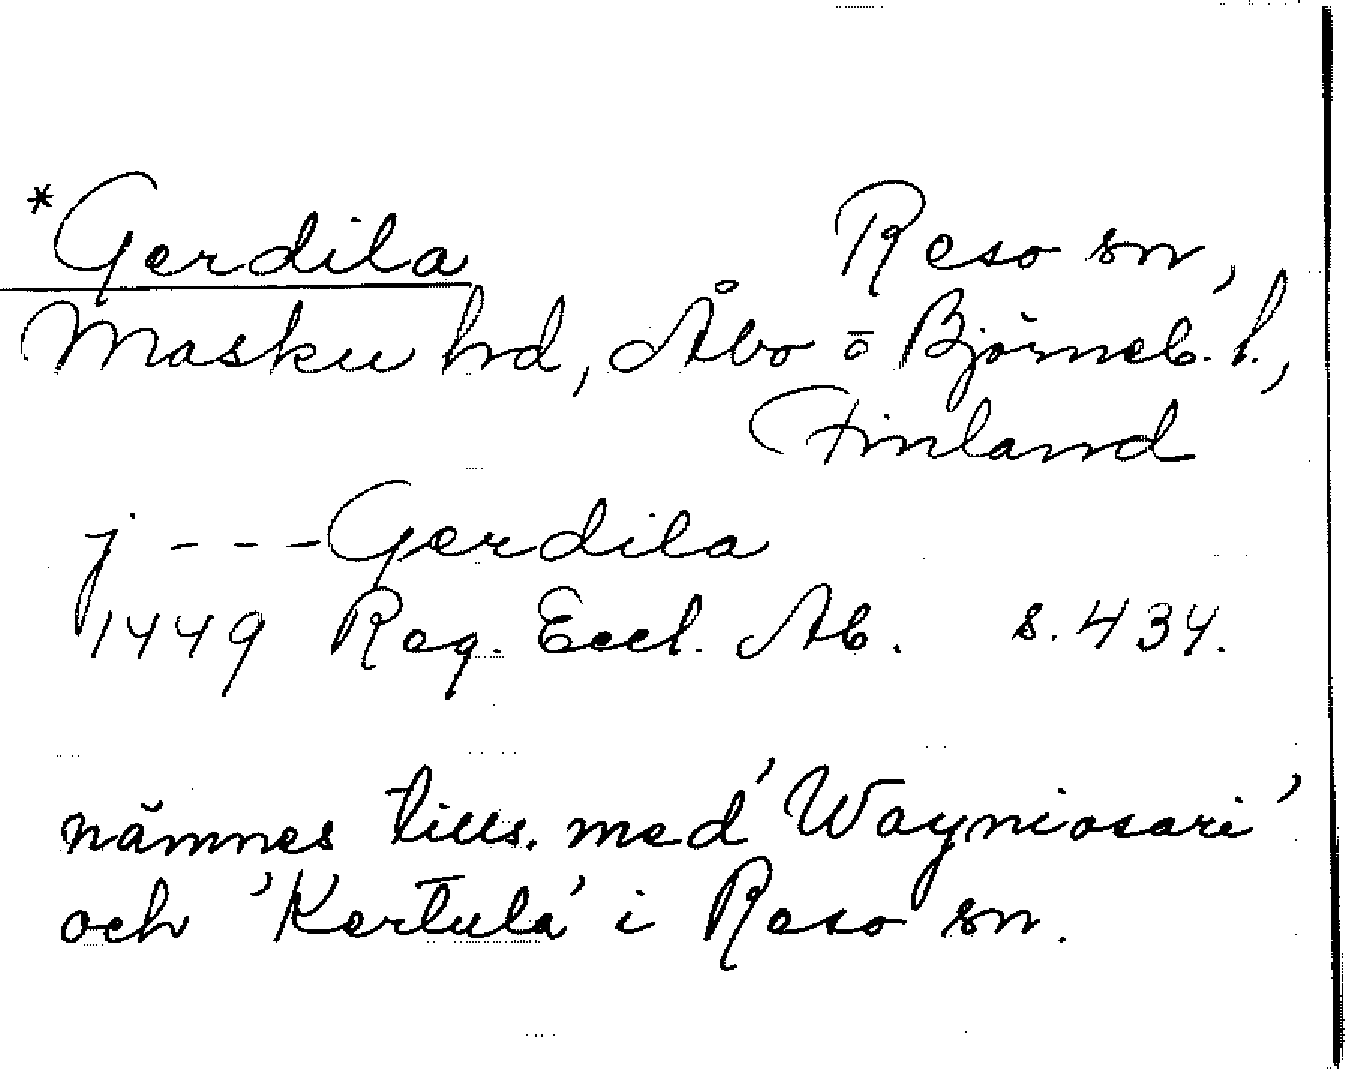 *Gerdila Reso sn,
Masku hd, Åbo o Björneb. l.,
Finland
j - - - Gerdila
1449 Reg. Eccl. Ab. s. 434.
nämnes tills. med 'Wayniosari'
och 'Kertula' i Reso sn.